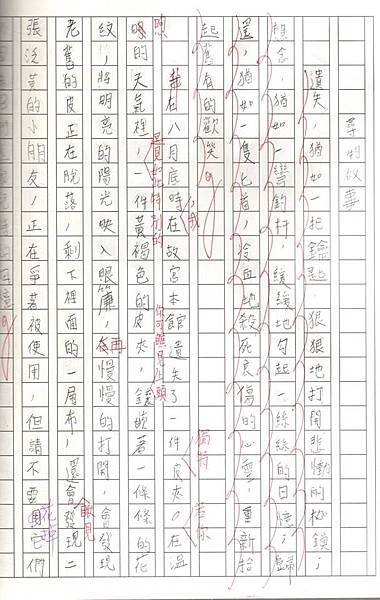 尋物故事
遺失，猶如一把鑰匙，狠狠地打開悲慟的枷鎖；
想念，猶如一彎釣竿，緩緩地勾起一絲絲的回憶；歸
還，猶如一隻匕首，冷血地殺死哀傷的心靈，重新拾
起舊有的歡笑。
我在八月底時在故宮本館遺失了一件皮夾。在溫
的天氣裡，一件黃褐色的皮夾，鑲嵌著一條條的花
紋，將明亮的陽光映入眼簾，在慢慢的打開，會發現
老舊的皮正在脫落，剩下裡面的一層布，還會發現二
張泛黃的小朋友，正在爭著被使用，但請不要用它們